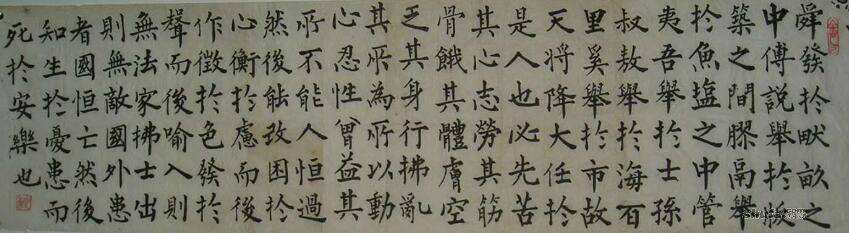 舜發於畎畝之
中傅說舉於版
築之間膠鬲舉
於魚塩之中管
夷吾舉於士孫
叔敖舉於海百
里奚舉於市故
天將降大任於
是人也必先苦
其心志勞其筋
骨餓其體膚空
乏其身行拂亂
其所為所以動
心忍性曾益其
所不能人恒過
然後能改困於
心衡於慮而後
作徵於色發於
聲而後喻入則
無法家拂士出
則無敵國外患
者國恒亡然後
知生於憂患而
死於安樂也